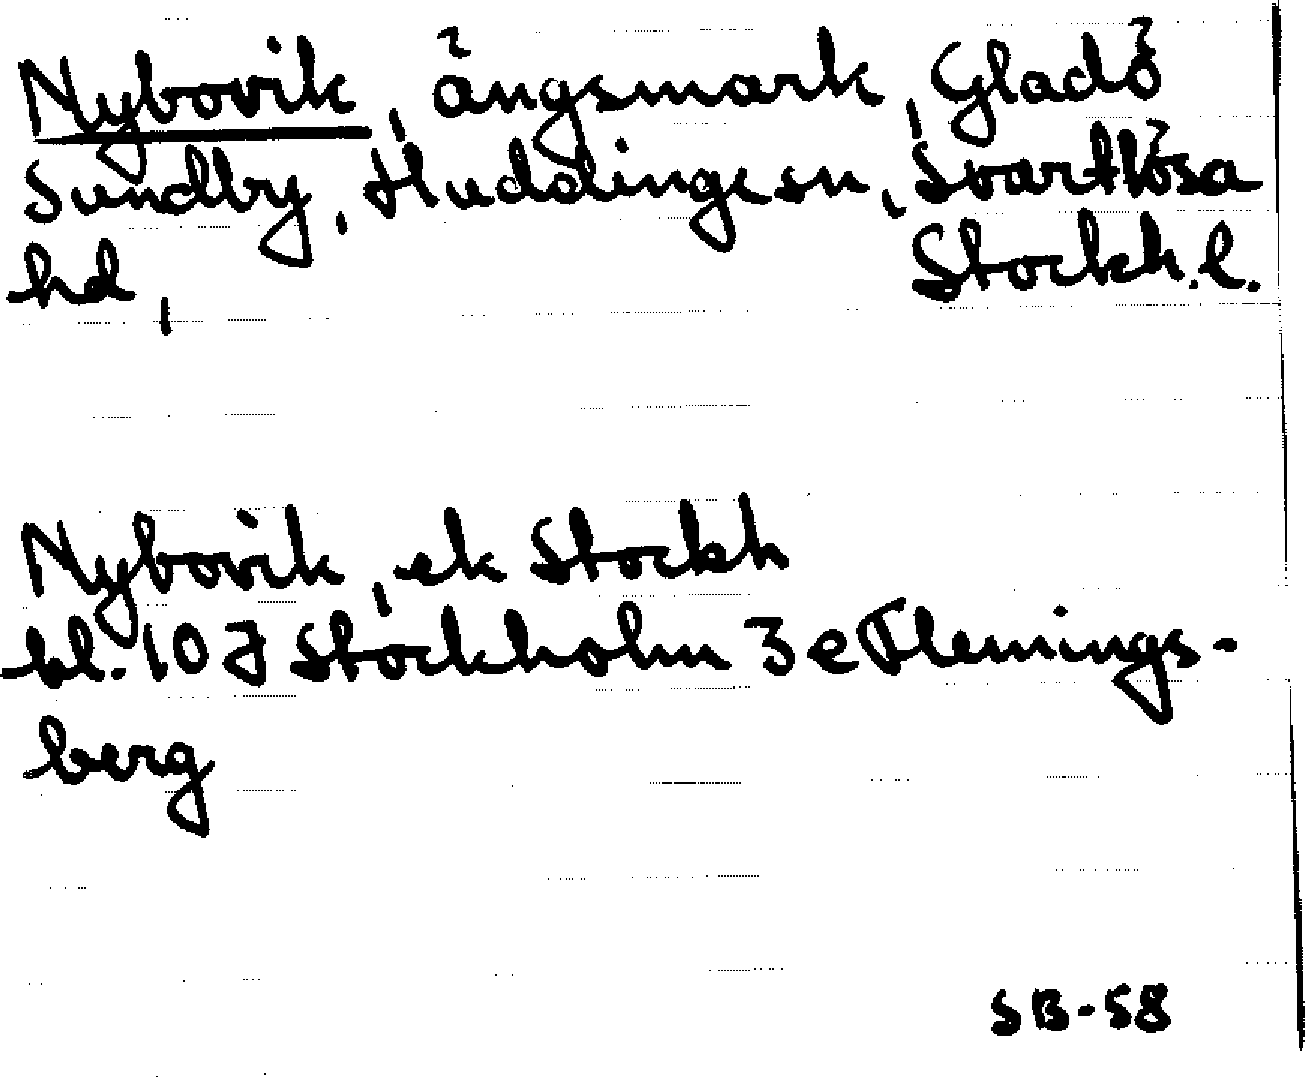 Nybovik, ängsmark, Gladö
Sundby, Huddinge sn, Svartlösa
hd, Stockh. l.
Nybovik, ek Stockh
bl. 10 J Stockholm 3 e Flemings-
berg
SB-58